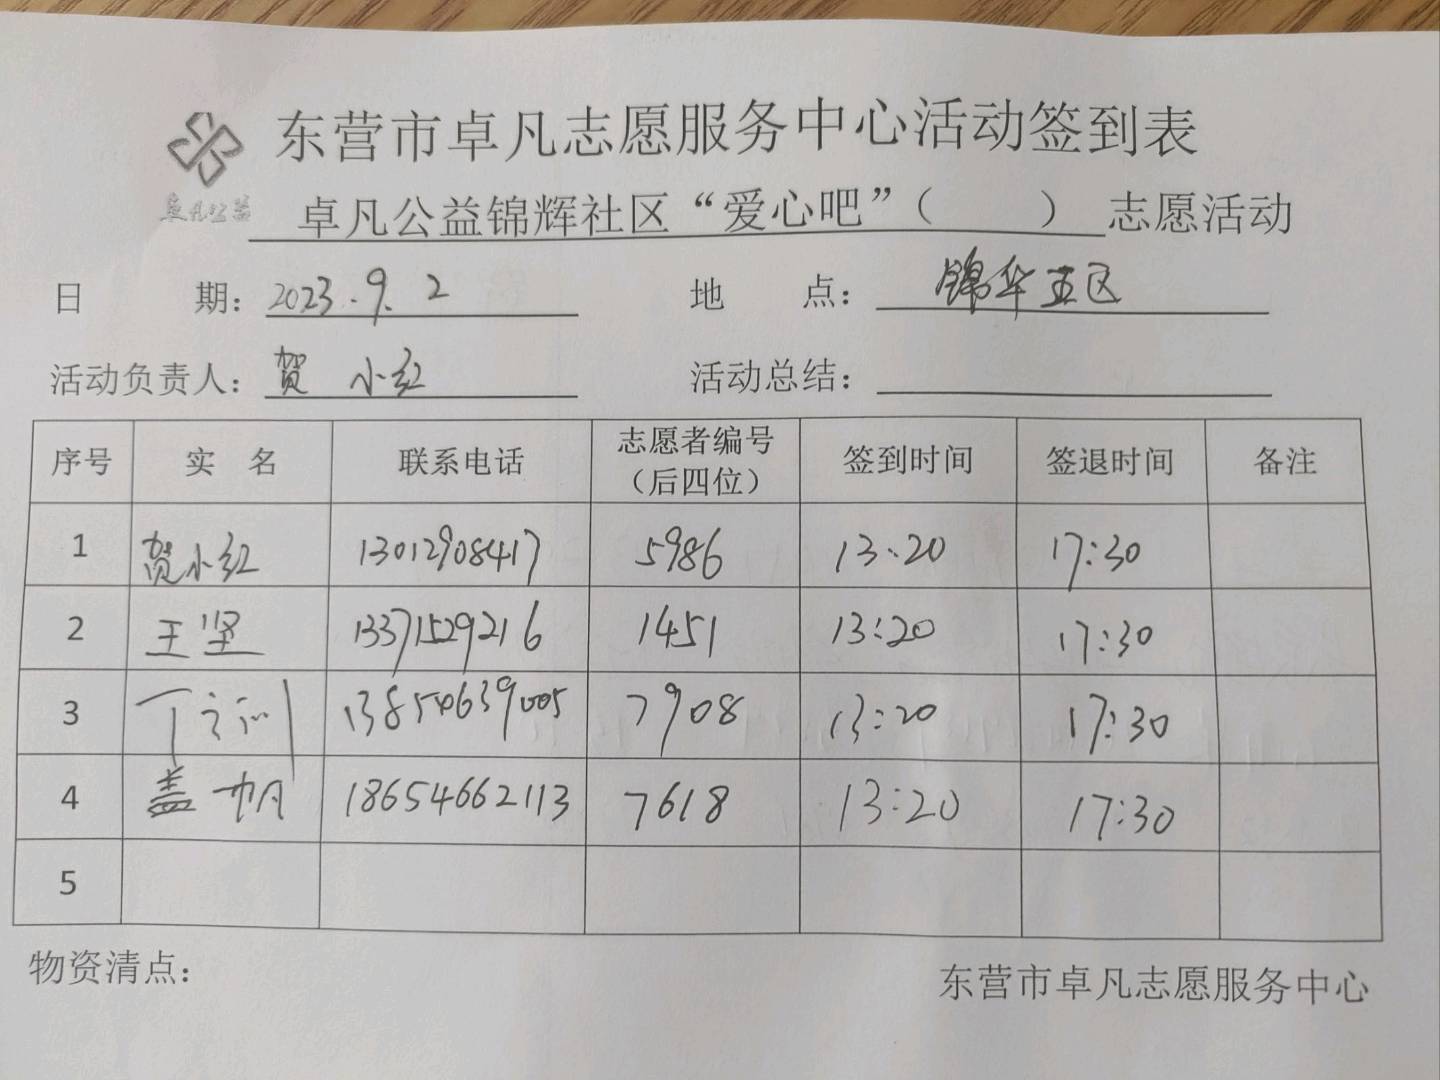 东营市卓凡志愿服务中心活动签到表
卓凡公益
卓凡公益锦辉社区“爱心吧”（ ）志愿活动
日 期：2023.9.2 地 点：锦华五区
活动负责人：贺小红 活动总结：
序号 实 名 联系电话 志愿者编号（后四位） 签到时间 签退时间 备注
1 贺小红 13012908417 5986 13:20 17:30
2 王坚 13371529216 1451 13:20 17:30
3 丁 13854639005 7908 13:20 17:30
4 盖帆 18654662113 7618 13:20 17:30
5
物资清点：
东营市卓凡志愿服务中心